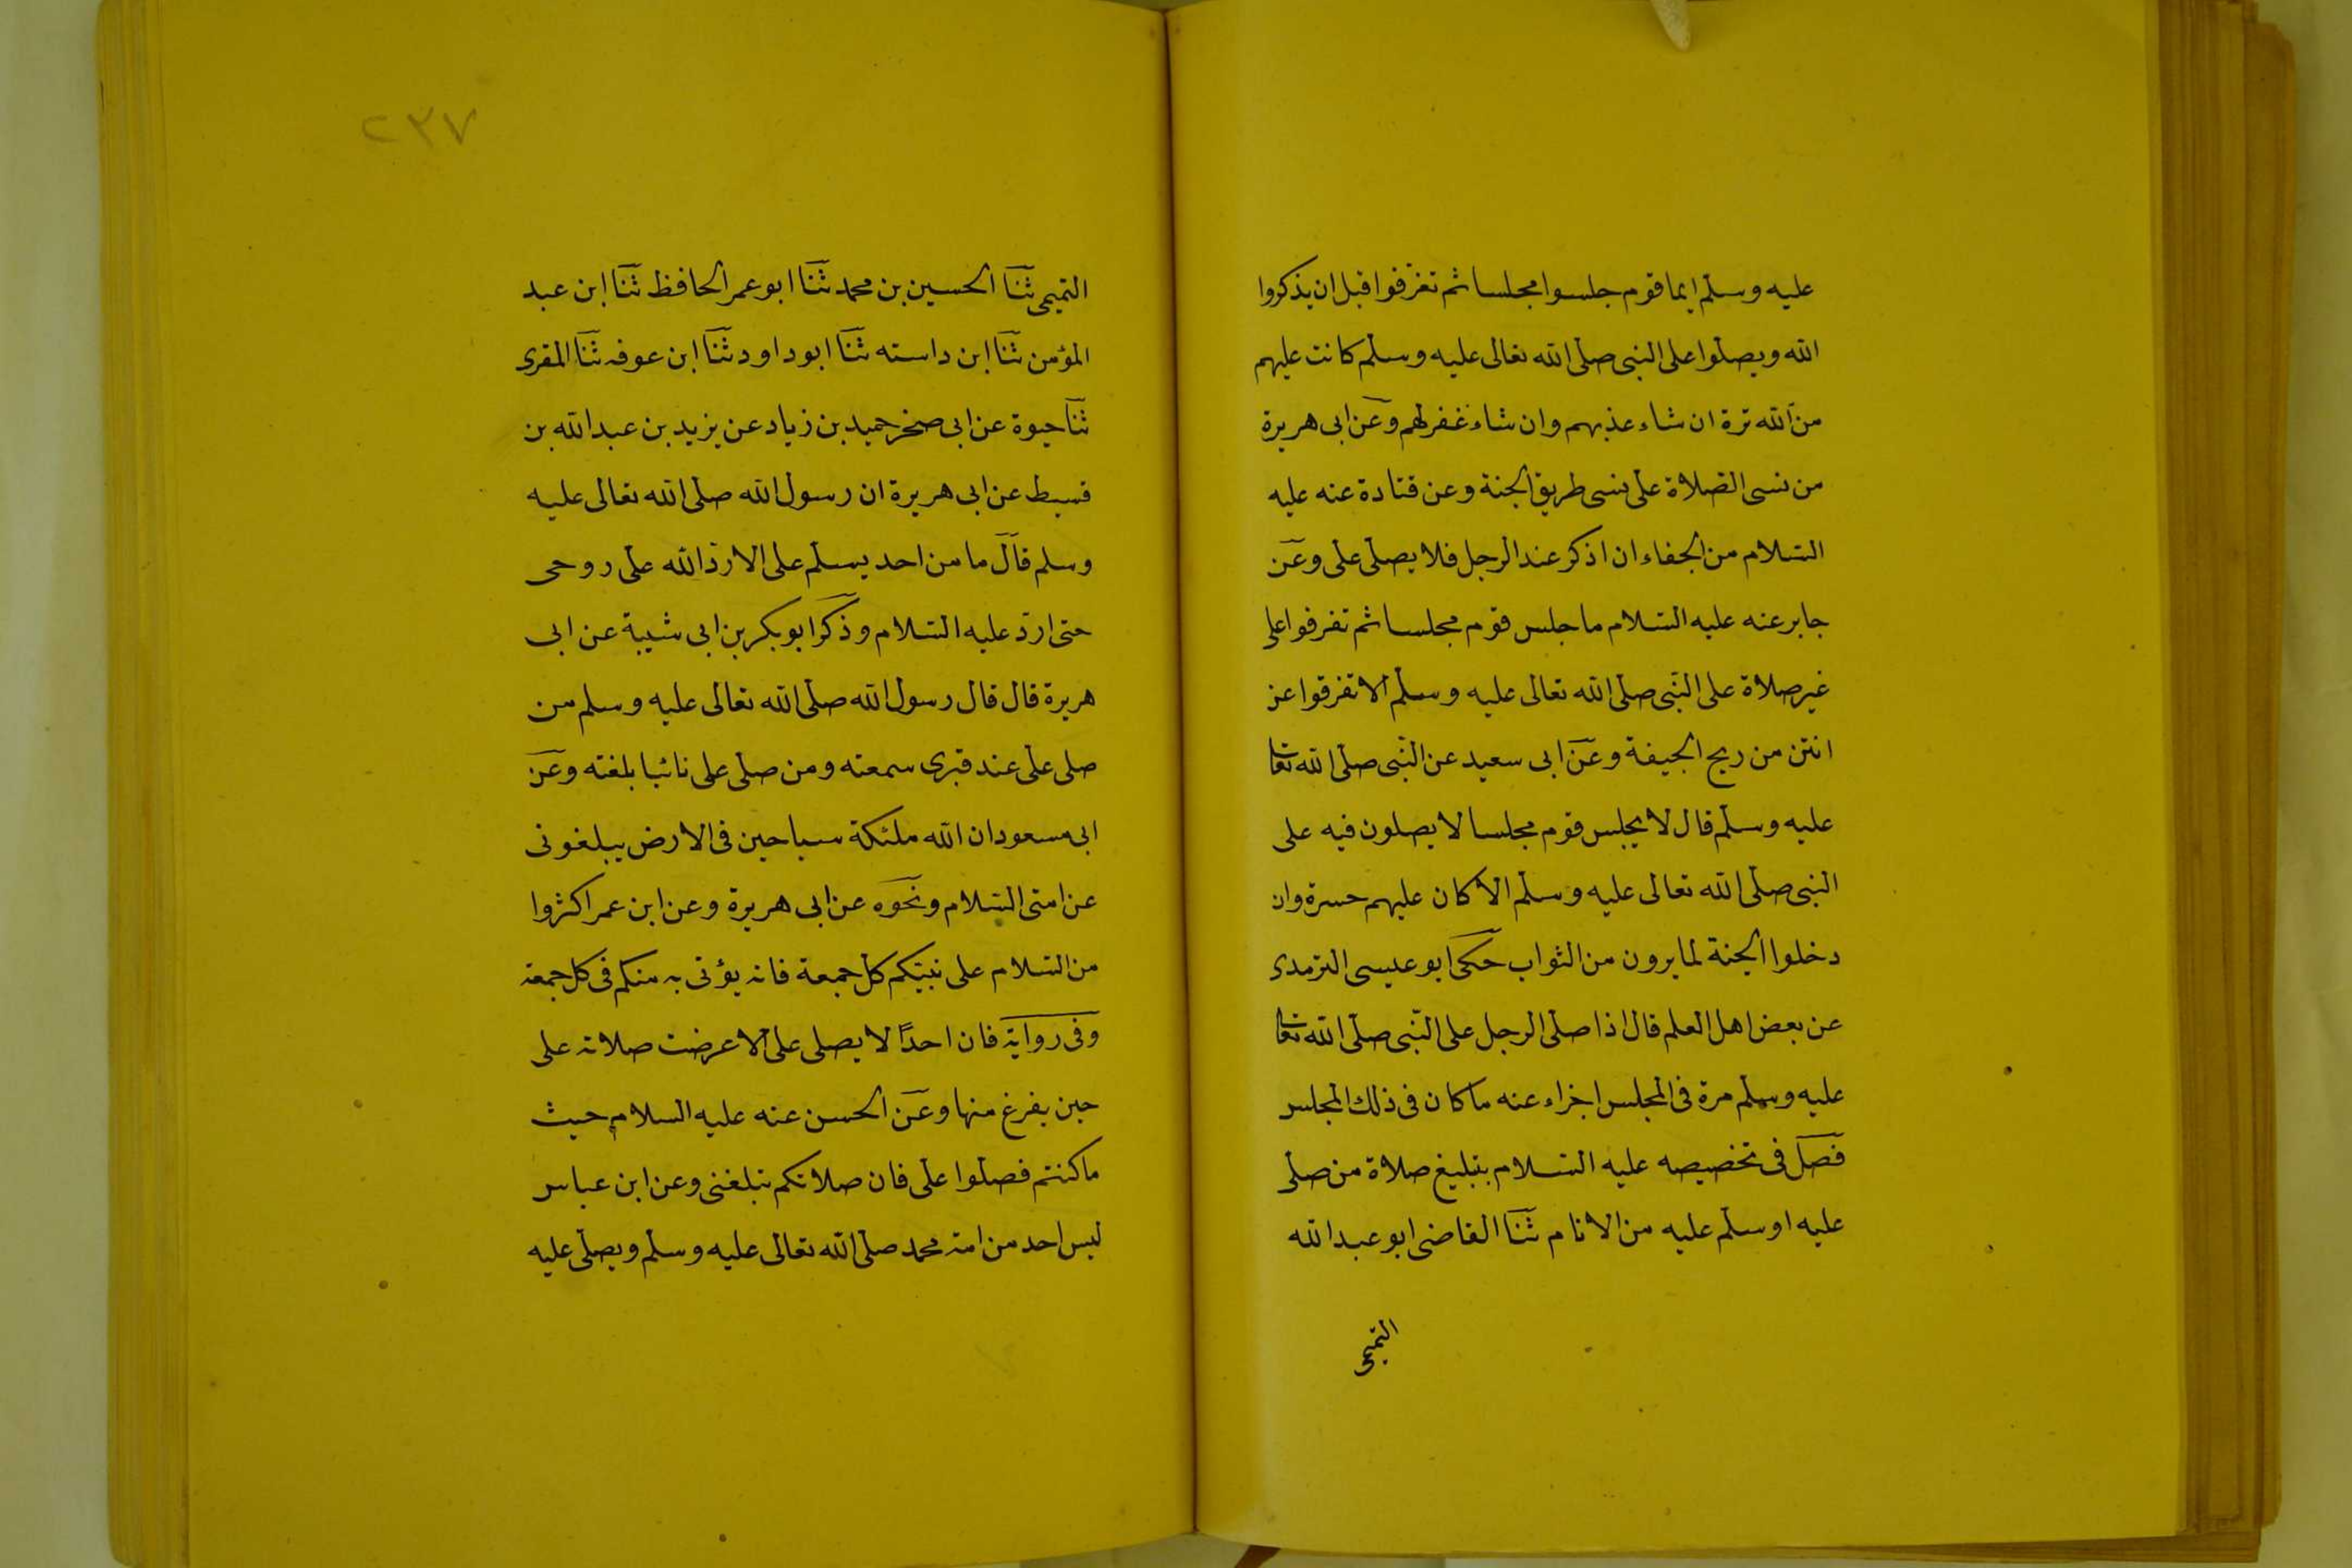 عليه وسلم ايما قوم جلسوا مجلسا ثم تفرقوا قبل ان يذكروا
الله ويصلوا على النبى صلى الله تعالى عليه وسلم كانت عليهم
من الله ترة ان شاء عذبهم وان شاء غفر لهم وعن ابى هريرة
من نسى الصلاة على نسى طريق الجنة وعن قتادة عنه عليه
السلام من الجفاء ان اذكر عند الرجل فلا يصلى على وعن
جابر عنه عليه السلام ما جلس قوم مجلسا ثم تفرقوا على
غير صلاة على النبى صلى الله تعالى عليه وسلم الا تفرقوا عن
انتن من ريح الجيفة وعن ابى سعيد عن النبى صلى الله تعا
عليه وسلم قال لا يجلس قوم مجلسا لا يصلون فيه على
النبى صلى الله تعالى عليه وسلم الا كان عليهم حسرة وان
دخلوا الجنة لما يرون من الثواب حكى ابو عيسى الترمدى
عن بعض اهل العلم قال اذا صلى الرجل على النبى صلى الله تعا
عليه وسلم مرة فى المجلس اجزاء عنه ما كان فى ذلك المجلس
فصل فى تخصيصه عليه السلام بتبليغ صلاة من صلى
عليه او سلم عليه من الانام ثنا القاضى ابو عبد الله
التميمى
٢٣٧
التميمى ثنا الحسين بن محمد ثنا ابو عمر الحافظ ثنا ابن عبد
المؤمن ثنا ابن داسته ثنا ابو داود ثنا ابن عوفه ثنا المقرى
ثنا حيوة عن ابى صخر حميد بن زياد عن يزيد بن عبد الله بن
قسيط عن ابى هريرة ان رسول الله صلى الله تعالى عليه
وسلم قال ما من احد يسلم على الا رد الله على روحى
حتى ارد عليه السلام وذكر ابو بكر بن ابى شيبة عن ابى
هريرة قال قال رسول الله صلى الله تعالى عليه وسلم من
صلى على عند قبرى سمعته ومن صلى على نائبا بلغته وعن
ابى مسعود ان الله ملئكة سياحين فى الارض يبلغونى
عن امتى السلام ونحوه عن ابى هريرة وعن ابن عمر اكثروا
من السلام على نبيكم كل جمعة فانه يؤتى به منكم فى كل جمعة
وفى رواية فان احدًا لا يصلى على الا عرضت صلاته على
حين يفرغ منها وعن الحسن عنه عليه السلام حيث
ما كنتم فصلوا على فان صلاتكم تبلغنى وعن ابن عباس
ليس احد من امة محمد صلى الله تعالى عليه وسلم ويصلى عليه